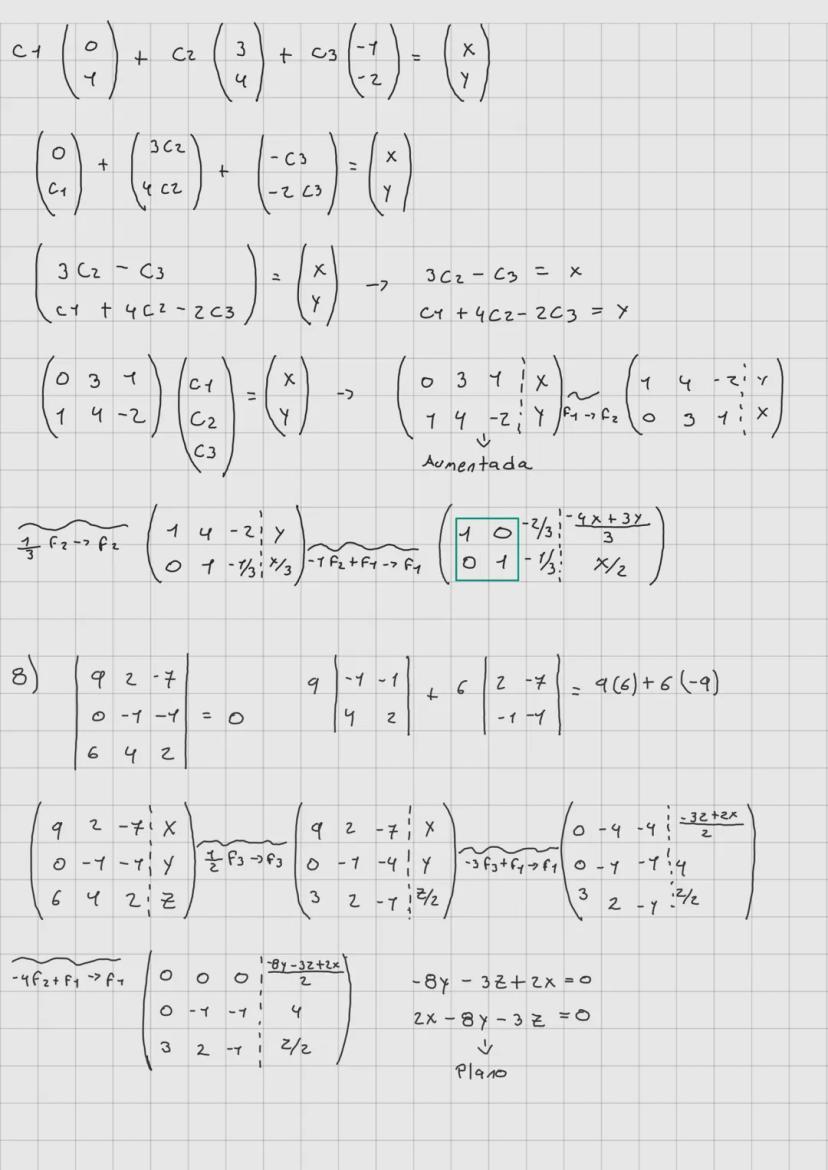 C1 (0 1) + C2 (3 4) + C3 (-1 -2) = (x y)
(0 C1) + (3C2 4C2) + (-C3 -2C3) = (x y)
(3C2 - C3 C1 + 4C2 - 2C3) = (x y) -> 3C2 - C3 = x
C1 + 4C2 - 2C3 = y
(0 3 1 1 4 -2) (C1 C2 C3) = (x y) -> (0 3 1 ¦ x 1 4 -2 ¦ y) ~ F1->F2 (1 4 -2 ¦ y 0 3 1 ¦ x)
Aumentada
1/3 F2->F2 (1 4 -2 ¦ y 0 1 -1/3 ¦ x/3) -1F2+F1->F1 (1 0 -2/3 ¦ (-4x+3y)/3 0 1 -1/3 ¦ x/2)
8) |9 2 -7 0 -1 -1 6 4 2| = 0 9 |-1 -1 4 2| + 6 |2 -7 -1 -1| = 9(6)+6(-9)
(9 2 -7 ¦ x 0 -1 -1 ¦ y 6 4 2 ¦ z) 1/2 F3->F3 (9 2 -7 ¦ x 0 -1 -1 ¦ y 3 2 -1 ¦ z/2) -3F3+F1->F1 (0 -4 -4 ¦ (-3z+2x)/2 0 -1 -1 ¦ y 3 2 -1 ¦ z/2)
-4F2+F1->F1 (0 0 0 ¦ (-8y-3z+2x)/2 0 -1 -1 ¦ y 3 2 -1 ¦ z/2) -8y - 3z + 2x = 0
2x - 8y - 3z = 0
Plano